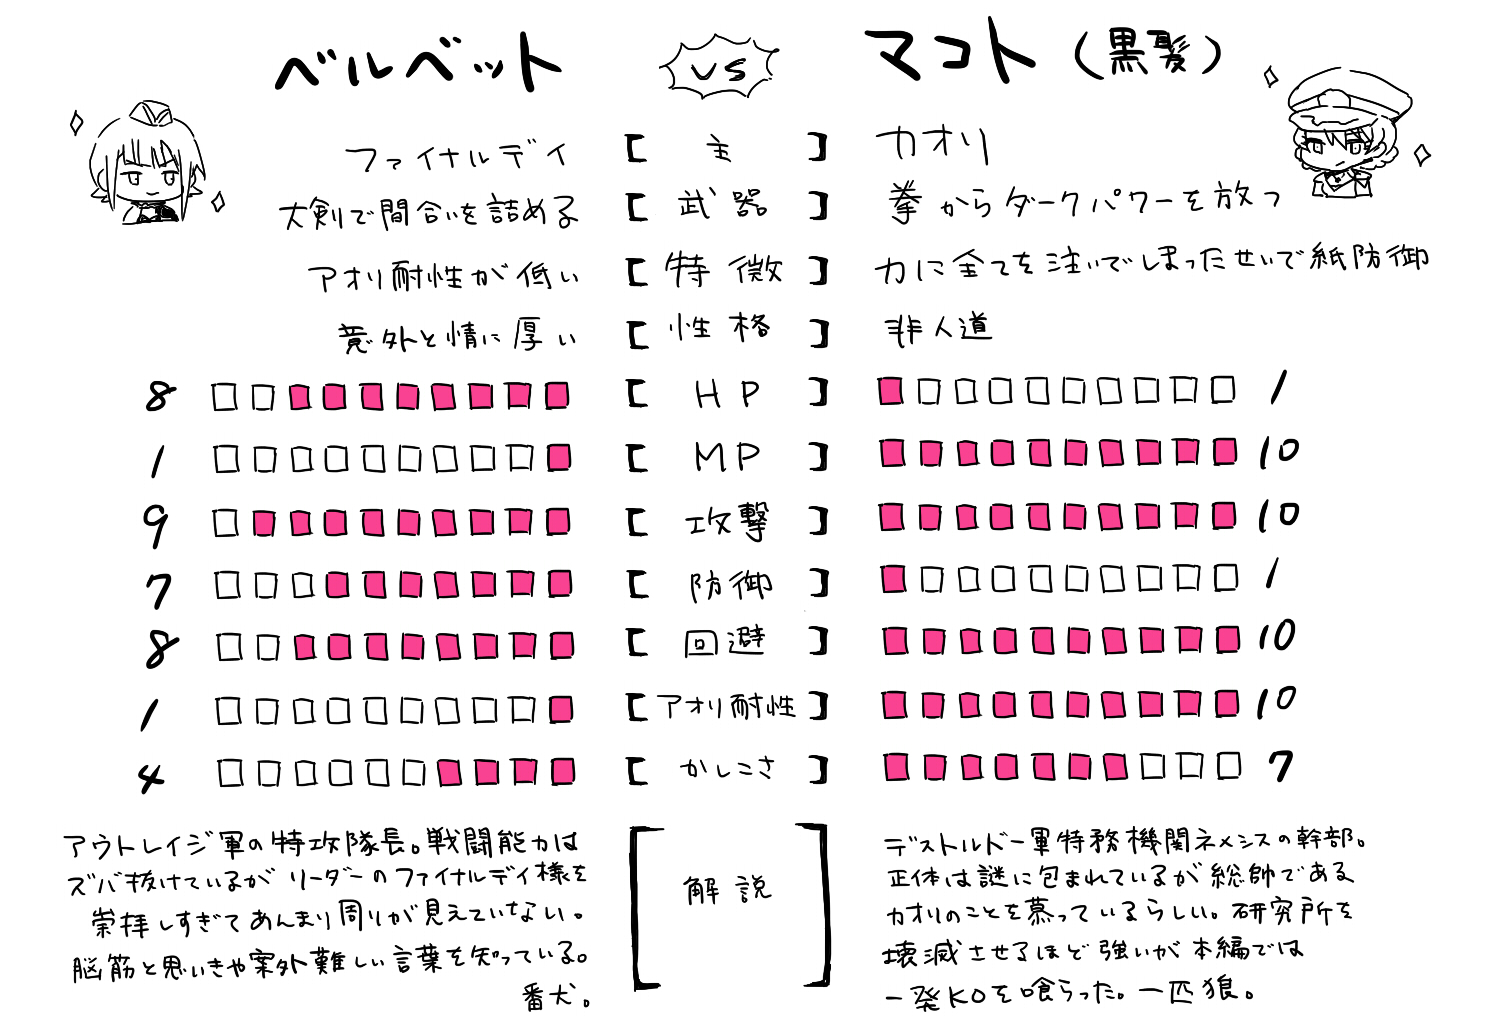 ベルベット VS マコト（黒髪）
ファイナルディ 【 主 】 カオリ
大剣で間合いを詰める 【 武器 】 拳からダークパワーを放つ
アオリ耐性が低い 【 特徴 】 力に全てを注いでしまったせいで紙防御
意外と情に厚い 【 性格 】 非人道
8 【 HP 】 1
1 【 MP 】 10
9 【 攻撃 】 10
7 【 防御 】 1
8 【 回避 】 10
1 【 アオリ耐性 】 10
4 【 かしこさ 】 7
アウトレイジ軍の特攻隊長。戦闘能力は
ズバ抜けているが リーダーのファイナルディ様を
崇拝しすぎてあんまり周りが見えていない。
脳筋と思いきや案外難しい言葉を知っている。
番犬。
【 解説 】
デストルドー軍特務機関ネメシスの幹部。
正体は謎に包まれているが総帥である
カオリのことを慕っているらしい。研究所を
壊滅させるほど強いが本編では
一発KOを喰らった。一匹狼。